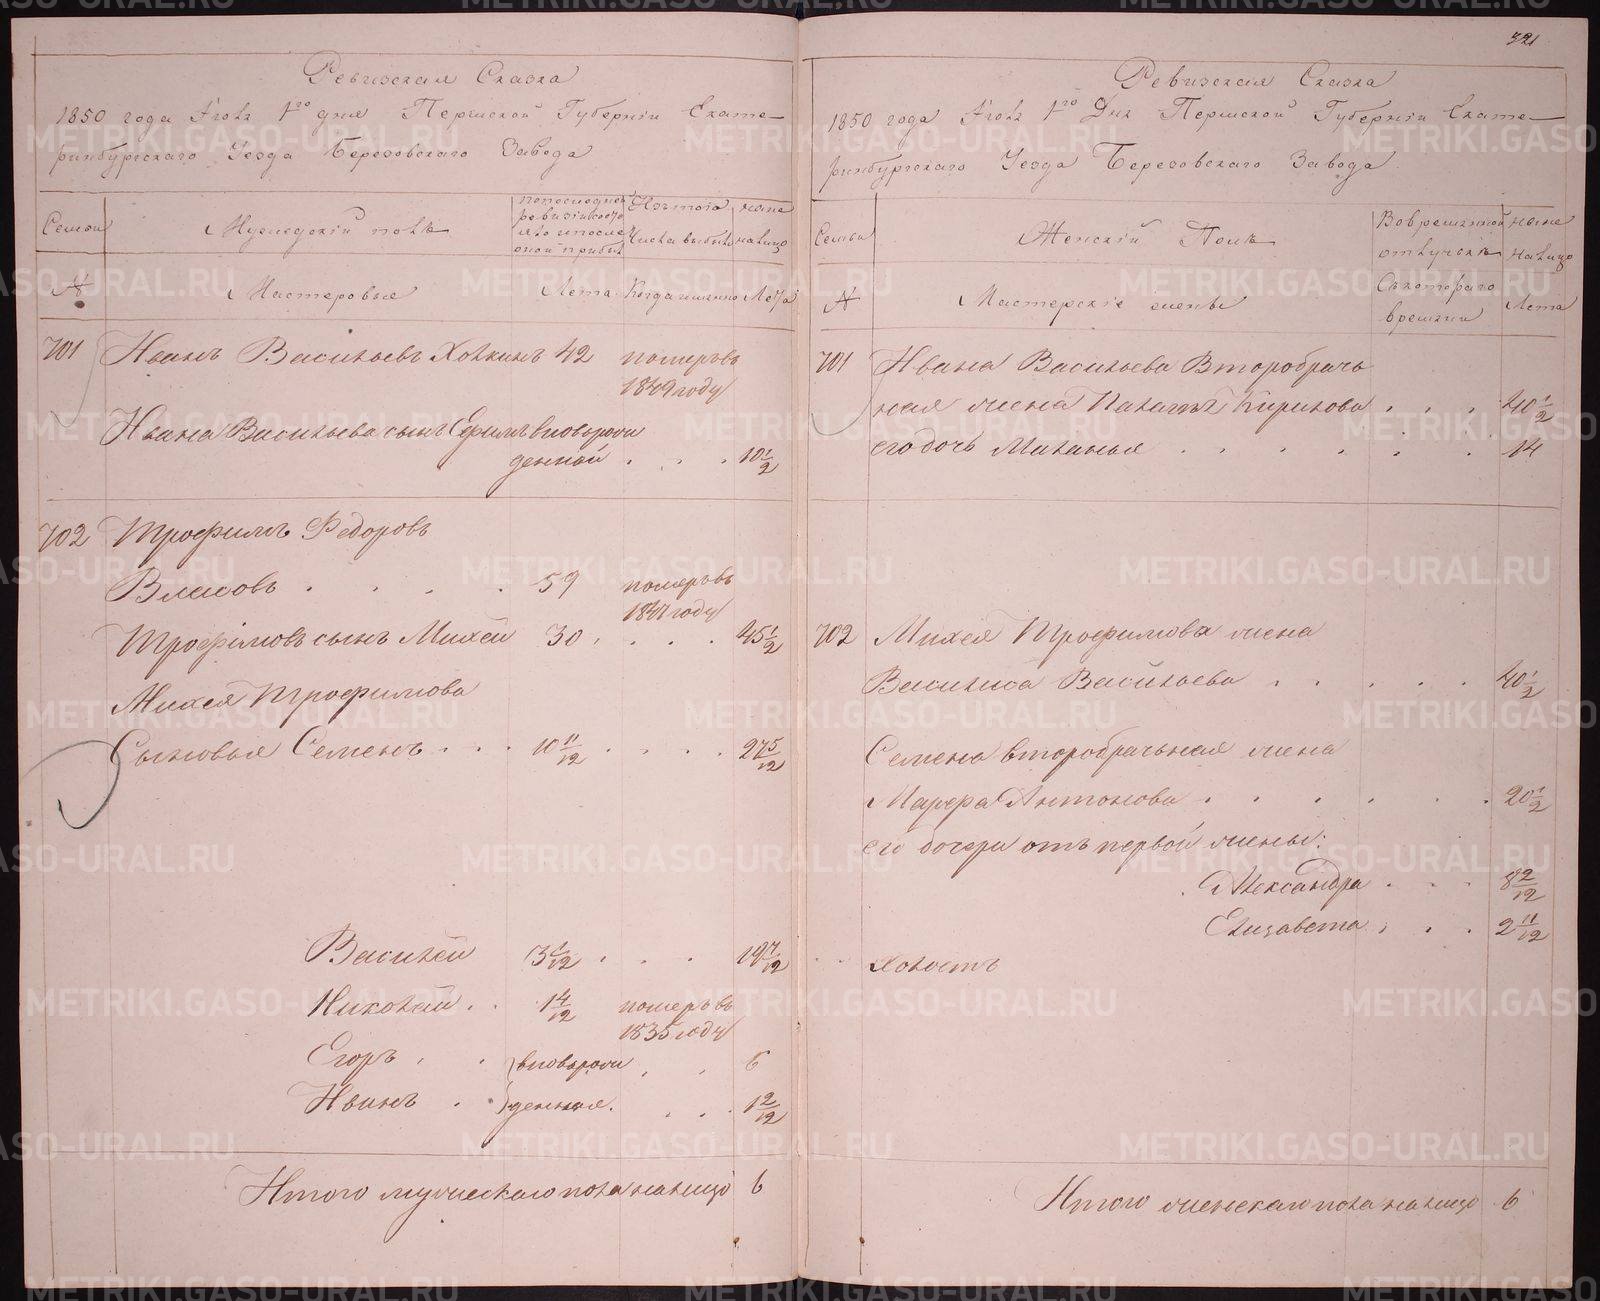 321
Ревизская Сказка
1850 года Iюля 1го дня Пермской Губернiи Екате-
ринбургскаго Уезда Березовскаго Завода
Семьи
Мужедскiй полъ
попоследней
ревизiи состо
яло ипосле
оной прибы
Изътого
числа выбыло
ныне
налицо
№
Мастеровые
Лета
Когда именно
Лета
701 Иванъ Васильевъ Холкинъ 42 померъ въ
1849 году
Ивана Васильева сынъ Ефимъ вновьрож
денной . . . 10 1/2
702 Трофимъ Федоровъ
Власовъ . . . . 59 померъ въ
1847 году
Трофимовъ сынъ Михей 30 . . . . 45 1/2
Михея Трофимова
Сыновья Семенъ . . . 10 11/12 . . . . 27 5/12
Василей 3 1/12 . . . 19 7/12
Николай . . 1 4/12 померъ въ
1835 году
Егоръ . . вновьрож . . 6
Иванъ . денныя . . . . 1 2/12
Итого мужескаго пола налицо 6
Ревизская Сказка
1850 года Iюля 1го Дня Пермской Губернiи Екате-
ринбургскаго Уезда Березовскаго Завода
Семьи
Женскiй Полъ
Вовременной
отлучкъ
ныне
налицо
№
Мастерскiе жены
Съкотораго
времени
Лета
701 Ивана Васильева Второбрач
ная жена Палагъя Кирилова . . . 40 1/2
его дочь Маланья . . . . . . 14
702 Михея Трофимова жена
Василиса Васильева . . . . . 40 1/2
Семена второбрачьная жена
Марфа Антонова . . . . . . 20 1/2
его дочери отъ первой жены:
Александра . . . 8 2/12
Елизавета . . . 2 11/12
Холостъ
Итого женскаго пола налицо 6
METRIKI.GASO-URAL.RU